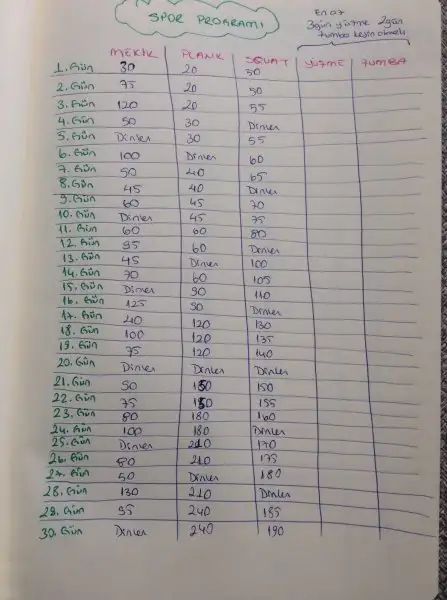 SPOR PROGRAMI
En az
3gün yüzme 2gün
zumba kesin olmalı
MEKİK PLANK SQUAT YÜZME ZUMBA
1. Gün 30 20 50
2. Gün 75 20 50
3. Gün 120 20 55
4. Gün 50 30 Dinlen
5. Gün Dinlen 30 55
6. Gün 100 Dinlen 60
7. Gün 50 40 65
8. Gün 45 40 Dinlen
9. Gün 60 45 70
10. Gün Dinlen 45 75
11. Gün 60 60 80
12. Gün 95 60 Dinlen
13. Gün 45 Dinlen 100
14. Gün 70 60 105
15. Gün Dinlen 90 110
16. Gün 125 90 Dinlen
17. Gün 40 120 130
18. Gün 100 120 135
19. Gün 75 120 140
20. Gün Dinlen Dinlen Dinlen
21. Gün 50 150 150
22. Gün 75 150 155
23. Gün 80 180 160
24. Gün 100 180 Dinlen
25. Gün Dinlen 210 170
26. Gün 80 210 175
27. Gün 50 Dinlen 180
28. Gün 130 210 Dinlen
29. Gün 95 240 185
30. Gün Dinlen 240 190